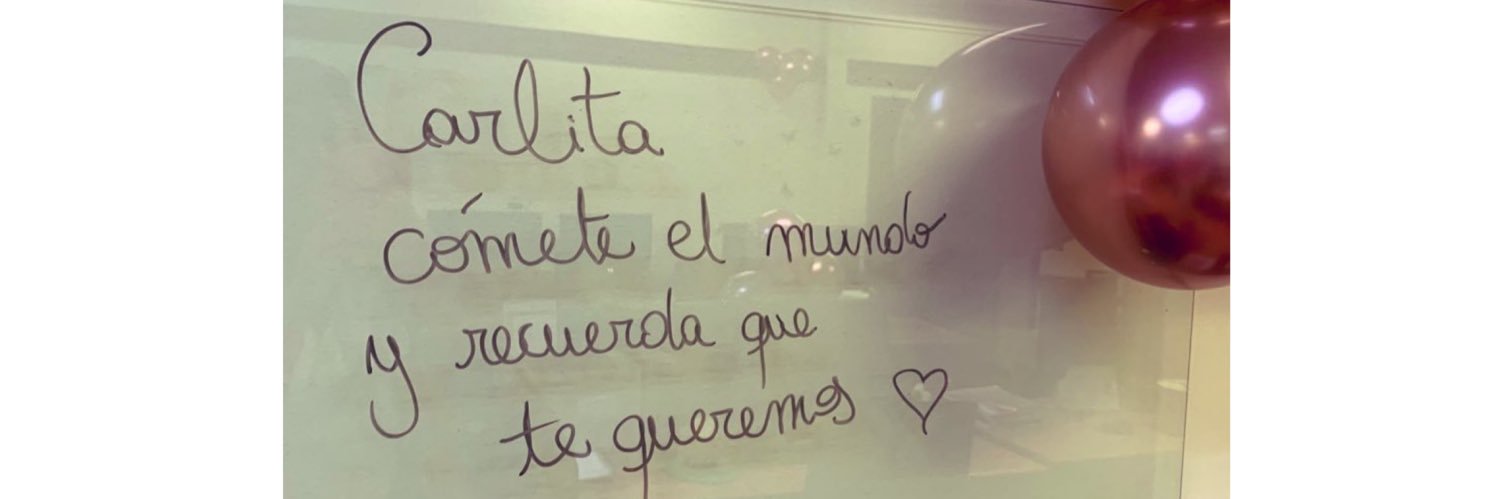 Carlita
cómete el mundo
y recuerda que
te queremos ♡